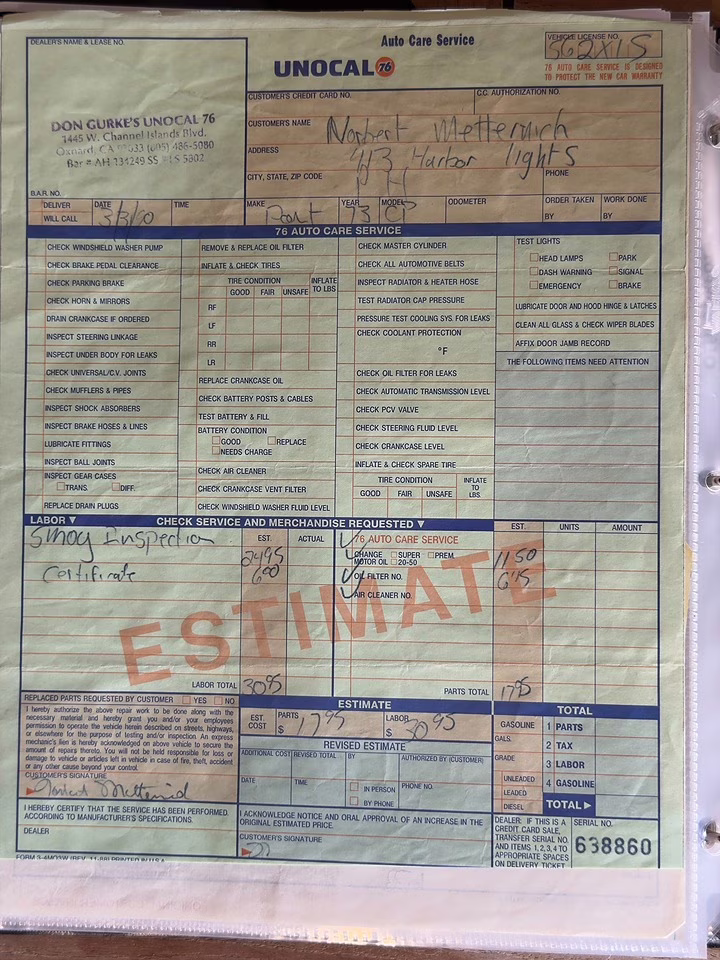 DEALER'S NAME & LEASE NO.
Auto Care Service
UNOCAL 76
VEHICLE LICENSE NO.
562X1S
76 AUTO CARE SERVICE IS DESIGNED
TO PROTECT THE NEW CAR WARRANTY
DON GURKE'S UNOCAL 76
1445 W. Channel Islands Blvd.
Oxnard, CA (805) 486-5080
B.A.R. NO.
CUSTOMER'S CREDIT CARD NO.
C.C. AUTHORIZATION NO.
CUSTOMER'S NAME Norbert Metternich
ADDRESS 413 Harbor lights
CITY, STATE, ZIP CODE P H
PHONE
DELIVER
WILL CALL
DATE 3/3/90
TIME
MAKE
YEAR 73
MODEL
ODOMETER
ORDER TAKEN
BY
WORK DONE
BY
76 AUTO CARE SERVICE
CHECK WINDSHIELD WASHER PUMP
CHECK BRAKE PEDAL CLEARANCE
CHECK PARKING BRAKE
CHECK HORN & MIRRORS
DRAIN CRANKCASE IF ORDERED
INSPECT STEERING LINKAGE
INSPECT UNDER BODY FOR LEAKS
CHECK UNIVERSAL/C.V. JOINTS
CHECK MUFFLERS & PIPES
INSPECT SHOCK ABSORBERS
INSPECT BRAKE HOSES & LINES
LUBRICATE FITTINGS
INSPECT BALL JOINTS
INSPECT GEAR CASES
TRANS. DIFF.
REPLACE DRAIN PLUGS
REMOVE & REPLACE OIL FILTER
INFLATE & CHECK TIRES
TIRE CONDITION
GOOD FAIR UNSAFE
INFLATE TO LBS
RF
LF
RR
LR
REPLACE CRANKCASE OIL
CHECK BATTERY POSTS & CABLES
TEST BATTERY & FILL
BATTERY CONDITION
GOOD REPLACE
NEEDS CHARGE
CHECK AIR CLEANER
CHECK CRANKCASE VENT FILTER
CHECK WINDSHIELD WASHER FLUID LEVEL
CHECK MASTER CYLINDER
CHECK ALL AUTOMOTIVE BELTS
INSPECT RADIATOR & HEATER HOSE
TEST RADIATOR CAP PRESSURE
PRESSURE TEST COOLING SYS. FOR LEAKS
CHECK COOLANT PROTECTION
°F
CHECK OIL FILTER FOR LEAKS
CHECK AUTOMATIC TRANSMISSION LEVEL
CHECK PCV VALVE
CHECK STEERING FLUID LEVEL
CHECK CRANKCASE LEVEL
INFLATE & CHECK SPARE TIRE
TIRE CONDITION
GOOD FAIR UNSAFE
INFLATE TO LBS
TEST LIGHTS
HEAD LAMPS PARK
DASH WARNING SIGNAL
EMERGENCY BRAKE
LUBRICATE DOOR AND HOOD HINGE & LATCHES
CLEAN ALL GLASS & CHECK WIPER BLADES
AFFIX DOOR JAMB RECORD
THE FOLLOWING ITEMS NEED ATTENTION
LABOR ▼ CHECK SERVICE AND MERCHANDISE REQUESTED ▼
EST. ACTUAL
Smog Inspection 24 95
Certificate 6 00
LABOR TOTAL 30 95
EST. UNITS AMOUNT
76 AUTO CARE SERVICE
CHANGE MOTOR OIL SUPER PREM. 20-50 11 50
OIL FILTER NO. 6 45
AIR CLEANER NO.
PARTS TOTAL 17 95
ESTIMATE
REPLACED PARTS REQUESTED BY CUSTOMER YES NO
I hereby authorize the above repair work to be done along with the
necessary material and hereby grant you and/or your employees
permission to operate the vehicle herein described on streets, highways,
or elsewhere for the purpose of testing and/or inspection. An express
mechanic's lien is hereby acknowledged on above vehicle to secure the
amount of repairs thereto. You will not be held responsible for loss or
damage to vehicle or articles left in vehicle in case of fire, theft, accident
or any other cause beyond your control.
CUSTOMER'S SIGNATURE
Norbert Metternich
I HEREBY CERTIFY THAT THE SERVICE HAS BEEN PERFORMED
ACCORDING TO MANUFACTURER'S SPECIFICATIONS.
DEALER
FORM 3-4MO3W (REV. 11-88) PRINTED IN U.S.A.
ESTIMATE
EST. COST
PARTS $ 17 95
LABOR $ 30 95
REVISED ESTIMATE
ADDITIONAL COST REVISED TOTAL BY AUTHORIZED BY (CUSTOMER)
DATE TIME IN PERSON BY PHONE PHONE NO.
I ACKNOWLEDGE NOTICE AND ORAL APPROVAL OF AN INCREASE IN THE
ORIGINAL ESTIMATED PRICE.
CUSTOMER'S SIGNATURE
TOTAL
GASOLINE 1 PARTS
GALS. 2 TAX
GRADE 3 LABOR
UNLEADED 4 GASOLINE
LEADED
DIESEL TOTAL ▶
DEALER: IF THIS IS A
CREDIT CARD SALE,
TRANSFER SERIAL NO.
AND ITEMS 1, 2, 3, 4 TO
APPROPRIATE SPACES
ON DELIVERY TICKET
SERIAL NO.
638860